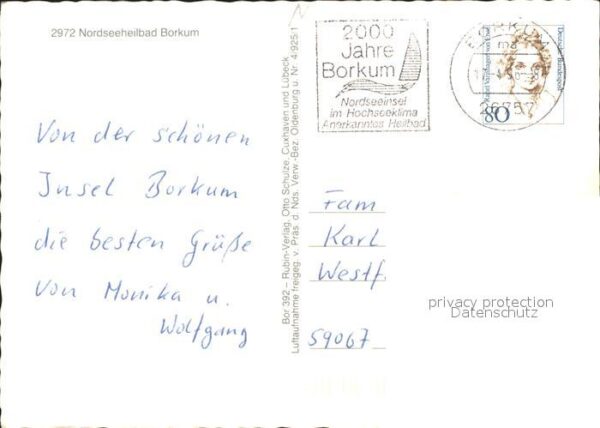 2972 Nordseeheilbad Borkum
Von der schönen
Insel Borkum
die besten Grüße
von Monika u.
Wolfgang
Bor 392 – Rubin-Verlag, Otto Schulze, Cuxhaven und Lübeck
Luftaufnahme freigeg. v. Präs. d. Nds. Verw.-Bez. Oldenburg u. Nr. 4/925/1
2000
Jahre
Borkum
Nordseeinsel
im Hochseeklima
Anerkanntes Heilbad
BORKUM
ma
26757
Deutsche Bundespost
80
Fam
Karl
Westf.
59067
privacy protection
Datenschutz